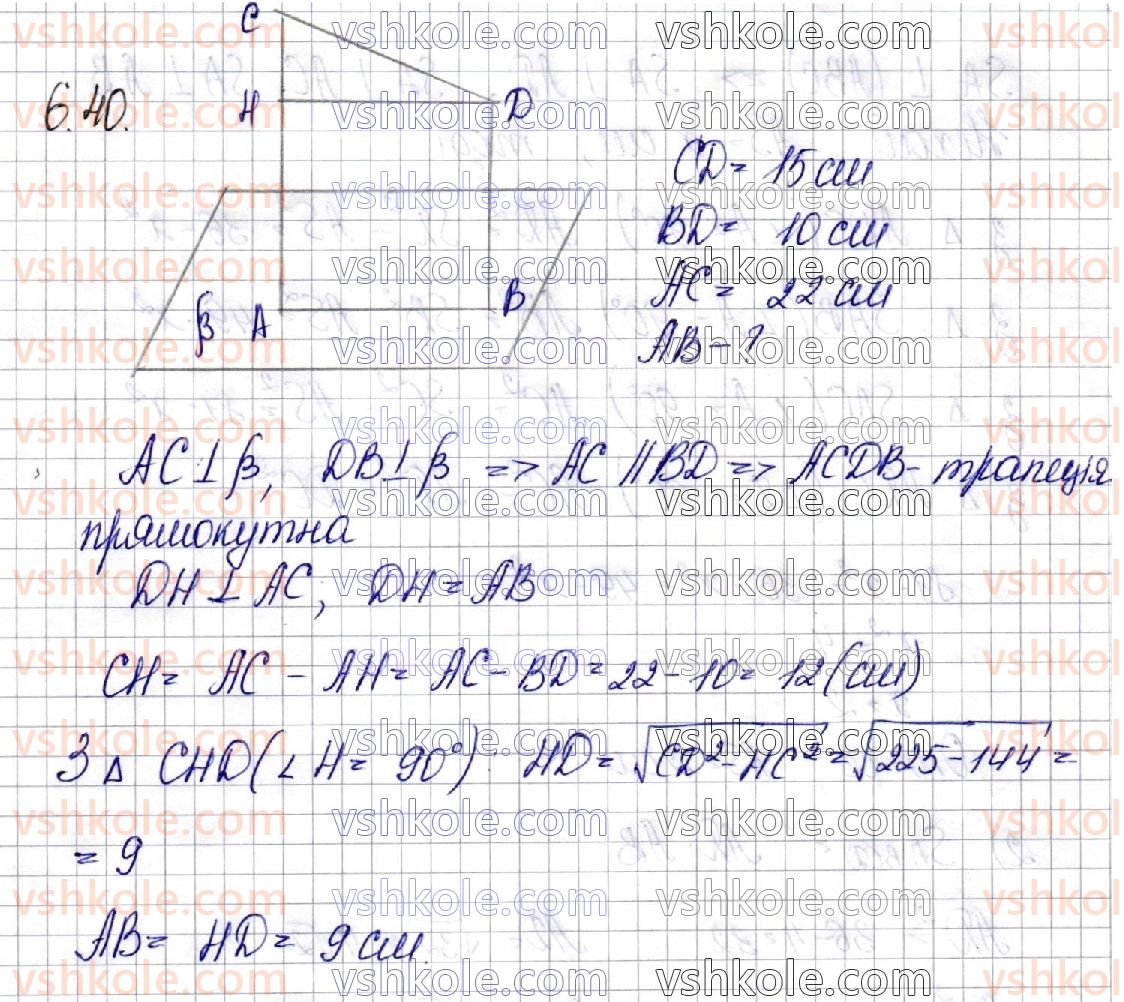 6.40.
C
H
D
β
A
B
CD = 15 см
BD = 10 см
AC = 22 см
AB - ?
AC ⊥ β, DB ⊥ β => AC || BD => ACDB - трапеція
прямокутна
DH ⊥ AC, DH = AB
CH = AC - AH = AC - BD = 22 - 10 = 12 (см)
З Δ CHD (∠ H = 90°) HD = √CD² - HC² = √225 - 144 =
= 9
AB = HD = 9 см.
vshkole.com